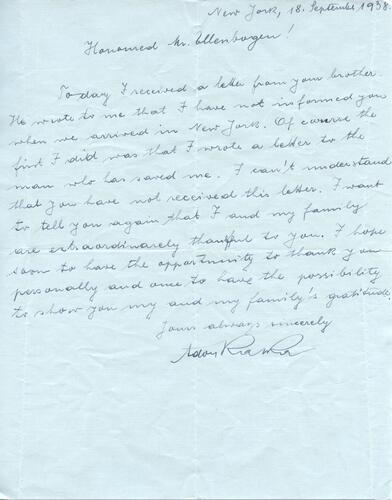 New York, 18. September 1938
Honoured Mr. Ellenbogen!
Today I received a letter from your brother.
He wrote to me that I have not informed you
when we arrived in New York. Of course the
first I did was that I wrote a letter to the
man who has saved me. I can't understand
that you have not received this letter. I want
to tell you again that I and my family
are extraordinarely thankful to you. I hope
soon to have the opportunity to thank you
personally and once to have the possibility
to show you my and my family's gratitude.
Yours always sincerely